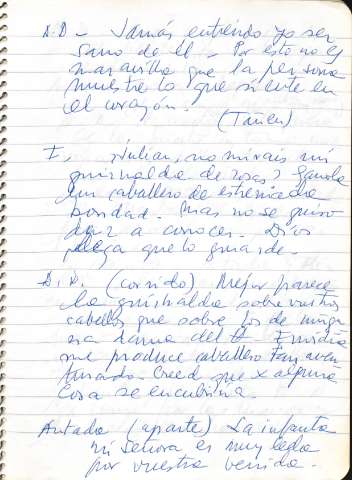 D.D - Jamás entiendo yo ser
sano de él - Por esto no es
maravilla que la persona
muestre lo que siente en
el corazón.
(Tañen)
I, ¡Julian, no mirais mi
guirnalda de rosas? Ganola
un caballero de estremada
bondad. Mas no se quiso
dar a conocer. Dios
plega que lo guarde.
D.D. (corrido) Mejor parece
la guirnalda sobre vuestros
cabellos que sobre los de ningu
na dama del Envidia
me produce caballero tan aven
turado. Creed que x alguna
cosa se encubriria.
Artada (aparte) La infanta
mi señora es muy leda
por vuestra venida.